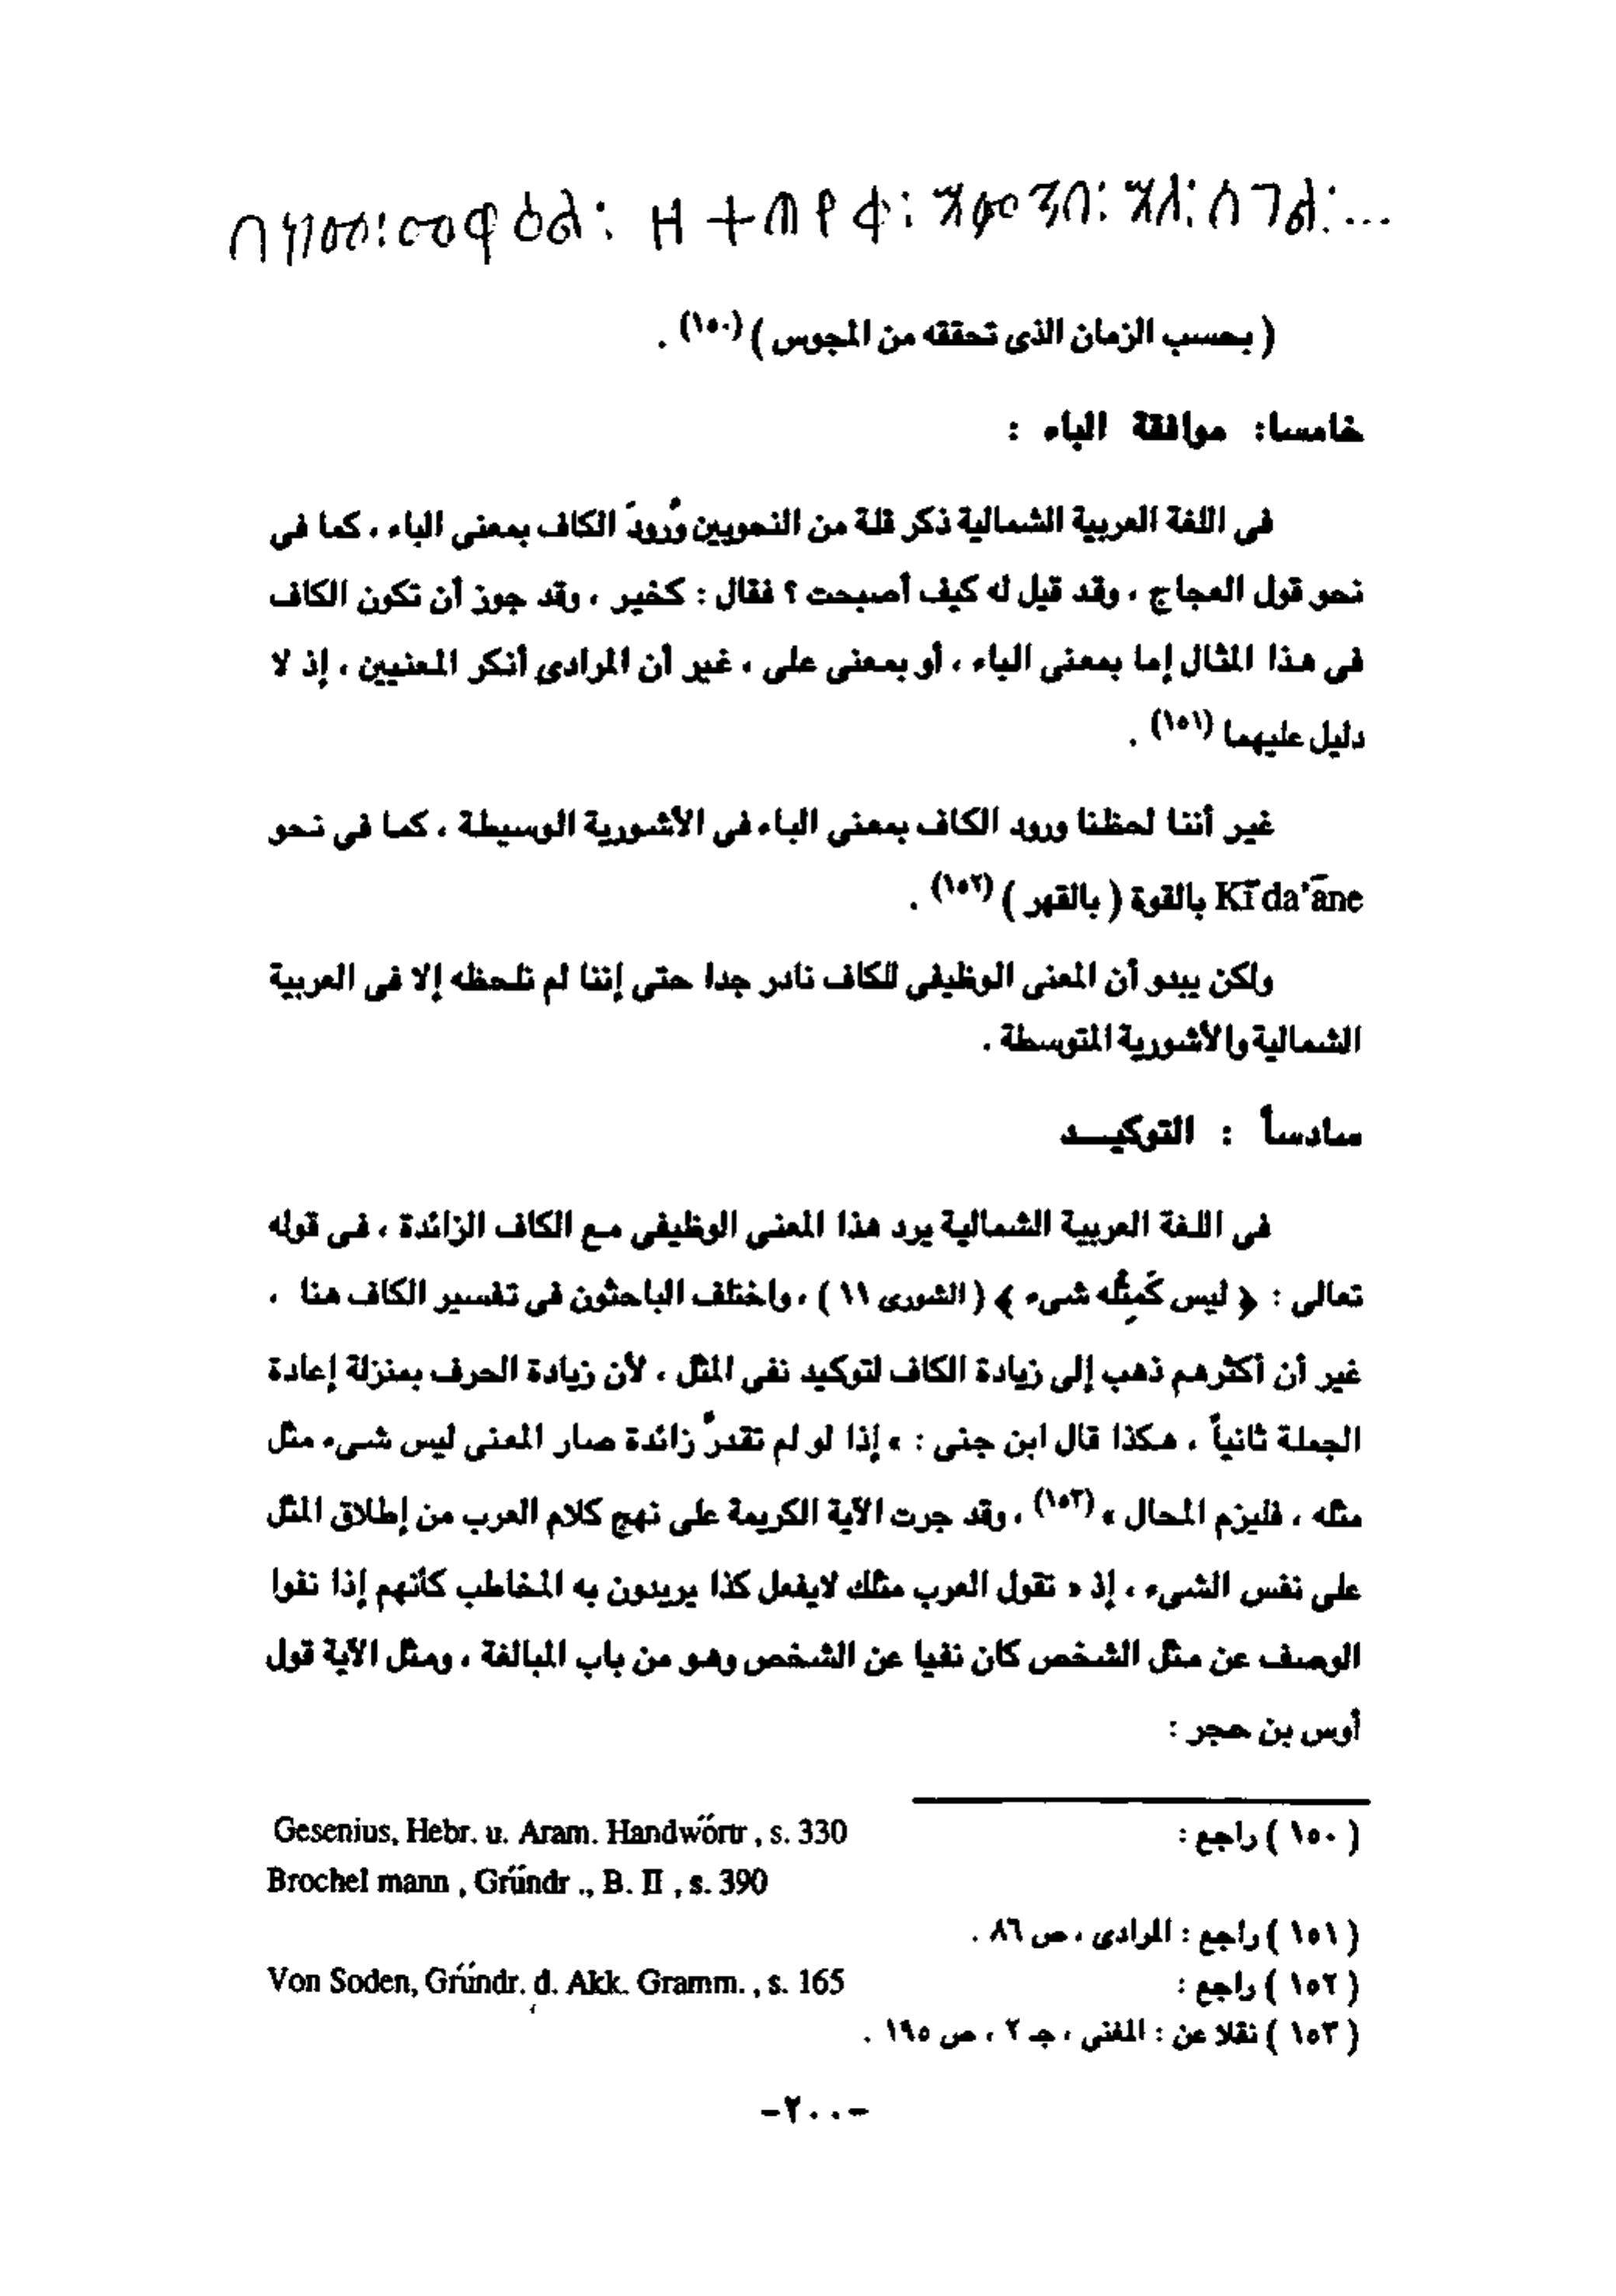 ( بحسب الزمان الذى تحققه من المجوس ) (١٥٠) .
خامسا: موافقة الباء :
فى اللغة العربية الشمالية ذكر قلة من النحويين وُرودَ الكاف بمعنى الباء ، كما فى
نحو قول العجاج ، وقد قيل له كيف أصبحت ؟ فقال : كخير ، وقد جوز أن تكون الكاف
فى هذا المثال إما بمعنى الباء ، أو بمعنى على ، غير أن المرادى أنكر المعنيين ، إذ لا
دليل عليهما (١٥١) .
غير أننا لحظنا ورود الكاف بمعنى الباء فى الأشورية الوسيطة ، كما فى نحو
Kī da'āne بالقوة ( بالقهر ) (١٥٢) .
ولكن يبدو أن المعنى الوظيفى للكاف نادر جدا حتى إننا لم نلحظه إلا فى العربية
الشمالية والأشورية المتوسطة .
سادسأ : التوكيــد
فى اللغة العربية الشمالية يرد هذا المعنى الوظيفى مع الكاف الزائدة ، فى قوله
تعالى : ﴿ ليس كَمِثْله شىء ﴾ ( الشورى ١١ ) ، واختلف الباحثون فى تفسير الكاف هنا ،
غير أن أكثرهم ذهب إلى زيادة الكاف لتوكيد نفى المثل ، لأن زيادة الحرف بمنزلة إعادة
الجملة ثانياً ، هكذا قال ابن جنى : « إذا لو لم تقدرْ زائدة صار المعنى ليس شىء مثل
مثله ، فليزم المحال » (١٥٣) ، وقد جرت الآية الكريمة على نهج كلام العرب من إطلاق المثل
على نفس الشىء ، إذ « تقول العرب مثلك لايفعل كذا يريدون به المخاطب كأنهم إذا نفوا
الوصف عن مثل الشخص كان نفيا عن الشخص وهو من باب المبالغة ، ومثل الآية قول
أوس بن حجر :
( ١٥٠ ) راجع : Gesenius, Hebr. u. Aram. Handwörtr , s. 330
Brochel mann , Gründr ., B. II , s. 390
( ١٥١ ) راجع : المرادى ، ص ٨٦ .
( ١٥٢ ) راجع : Von Soden, Gründr. d. Akk. Gramm. , s. 165
( ١٥٣ ) نقلا عن : المغنى ، جـ ٢ ، ص ١٩٥ .
-٢٠٠-